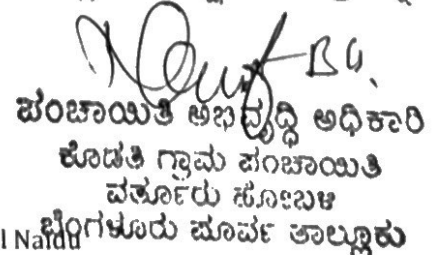 B G.
ಪಂಚಾಯಿತಿ ಅಭಿವೃದ್ಧಿ ಅಧಿಕಾರಿ
ಕೊಡತಿ ಗ್ರಾಮ ಪಂಚಾಯಿತಿ
ವರ್ತೂರು ಹೋಬಳಿ
l Naidu ಬೆಂಗಳೂರು ಪೂರ್ವ ತಾಲ್ಲೂಕು